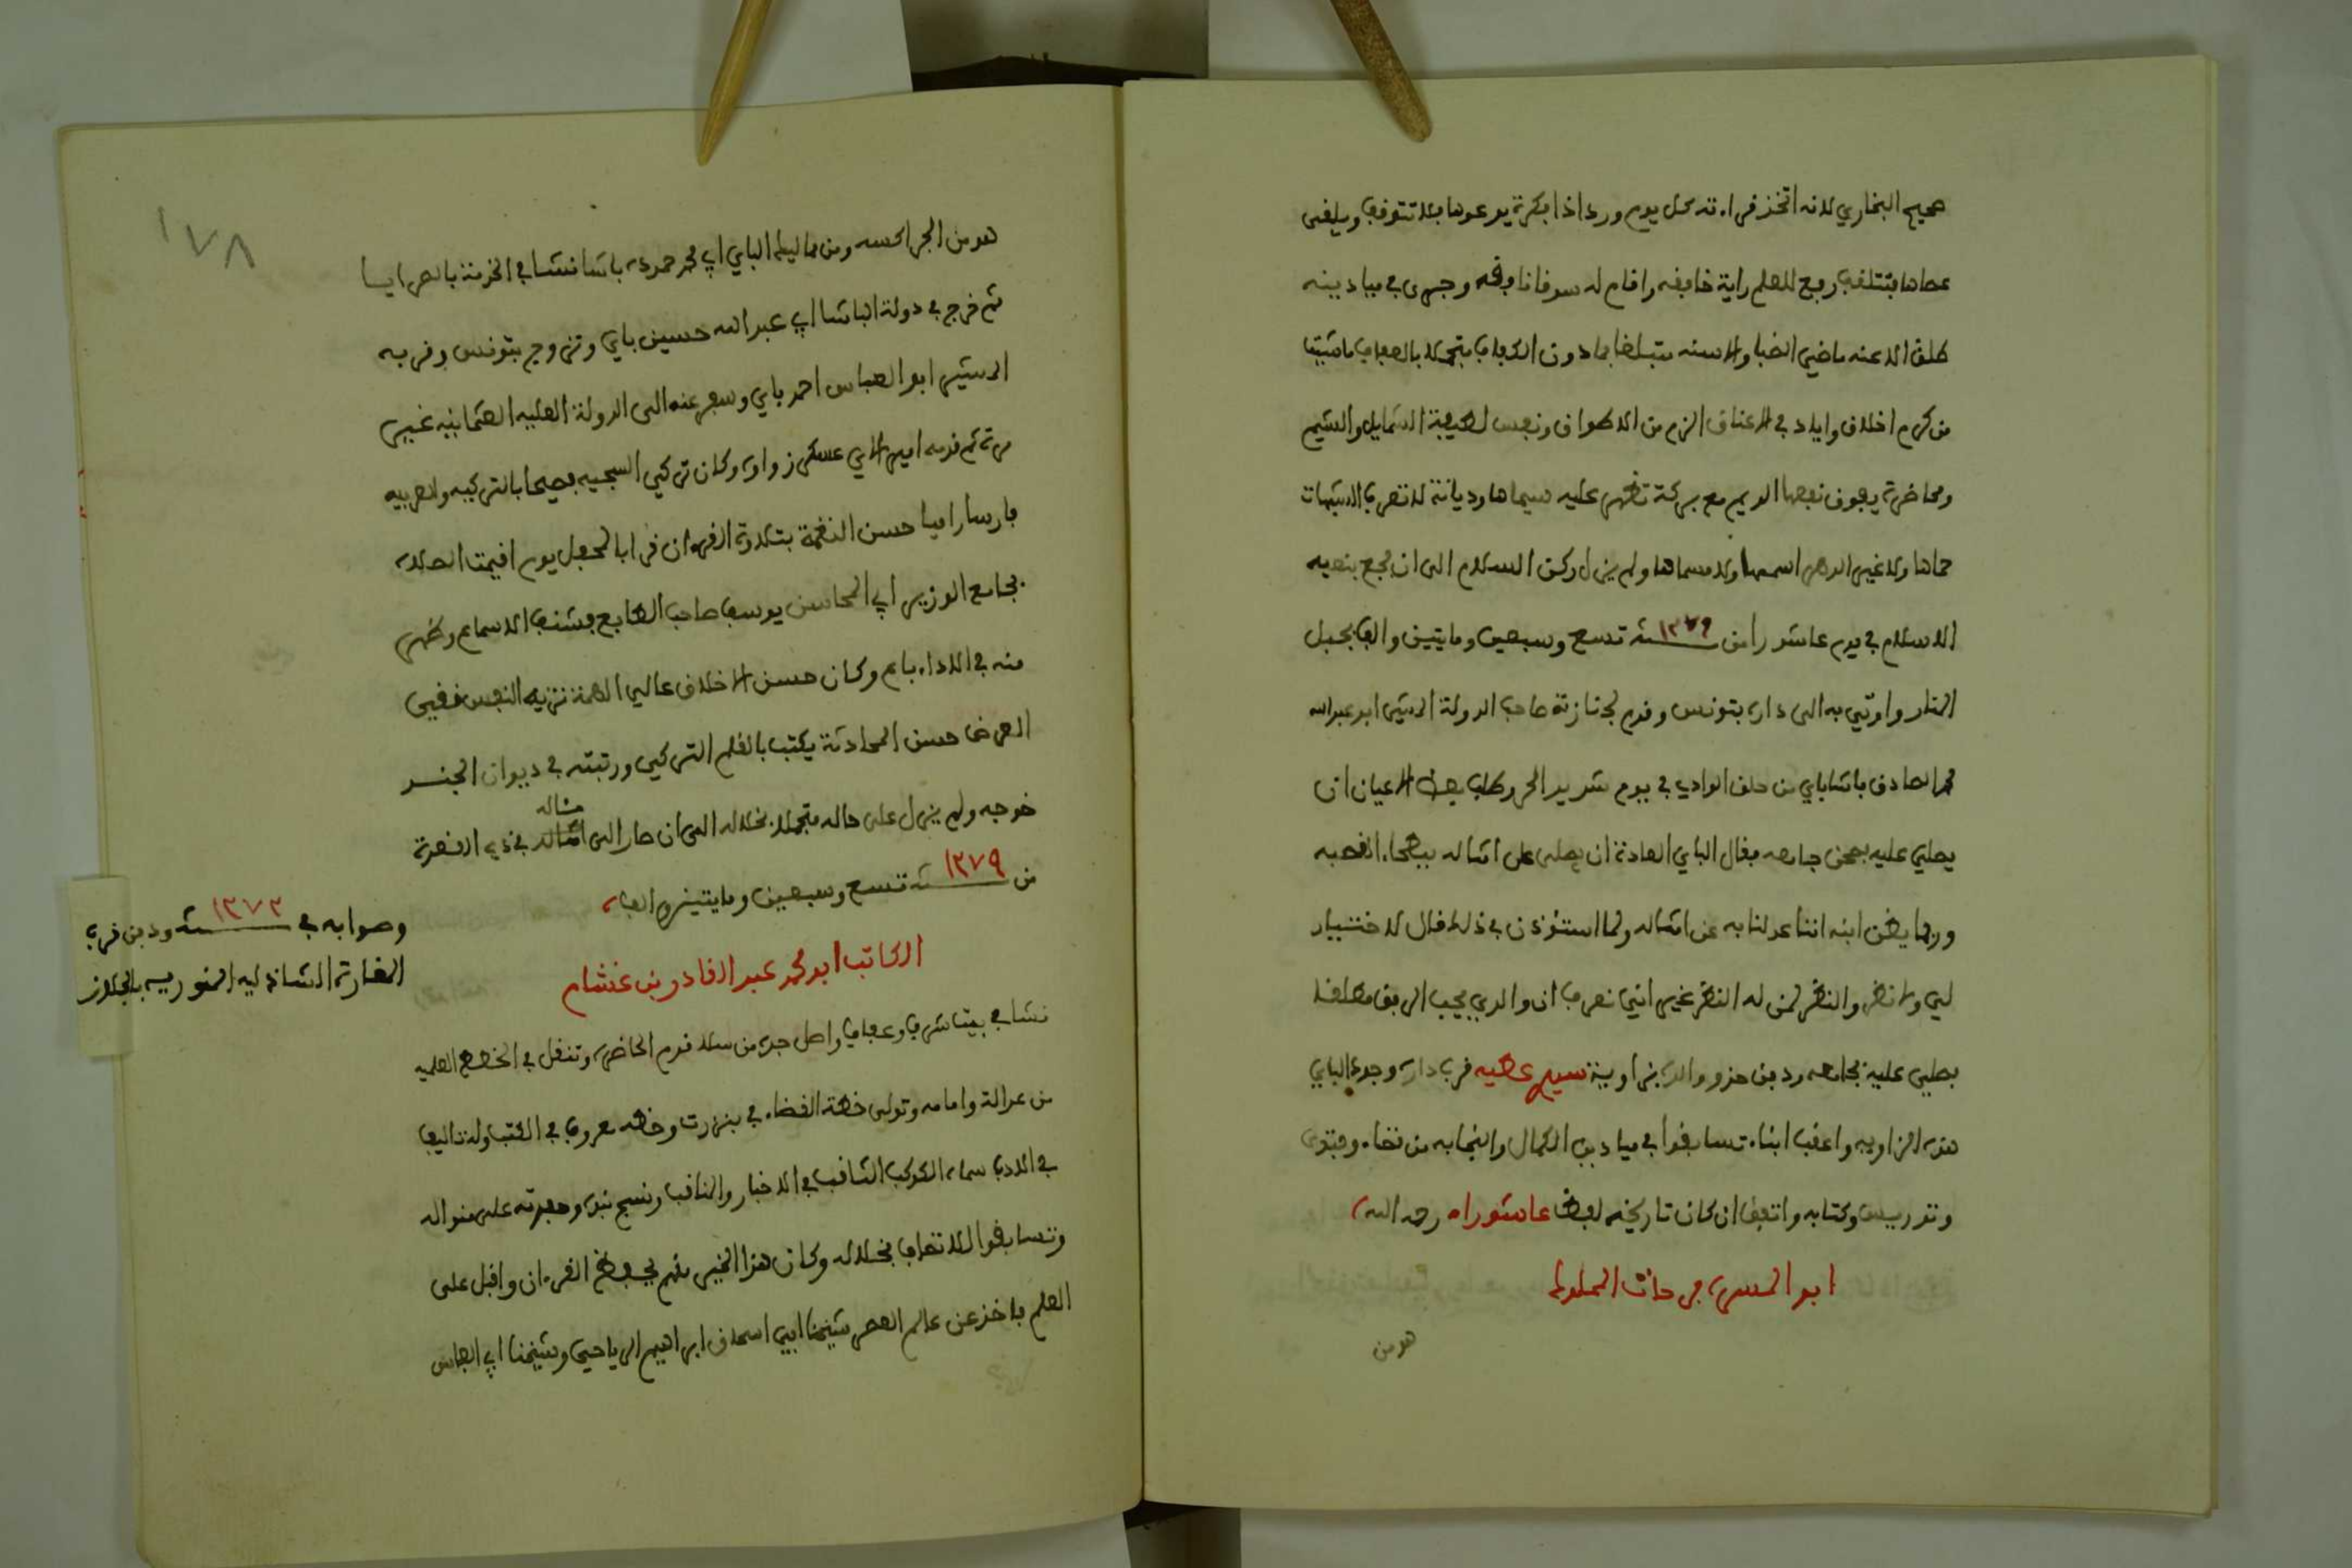 صحيح البخاري لانه اتخذ قراءته كل يوم وردا اذا بكرة يدعوها بلا تتوقف ويلقي
عصاها فتتلقف رفع للعلم راية خافقه واقام له سوقا نافقه وجرى في ميادينه
طلق الاعنه ماضي الضبا والاسنه متبلغا بما دون الكفاف متجملا بالعفاف ما شيت
من كرم اخلاق واياد في الاعناق الزم من الاطواق ونفس لطيفة الشمايل والشيم
ومحاضرة يفوق نفعها الديم مع بركة تظهر عليه سيماها وديانة لا تقرب الشبهات
حماها ولا غير الدهر اسمها ولا مسماها ولم يزل ركن السلام الى ان فجع بنعيه
الاسلام في يوم عاشوراء من ١٢٧٩ سنة تسع وسبعين وماىتين والف بجبل
المنار واوتي به الى داره بتونس وقدم لجنازته صاحب الدولة المشير ابو عبد الله
محمد الصادق باشا باي من حلق الوادي في يوم شديد الحر وطلب بعض الاعيان ان
يصلي عليه بصحن جامعه فقال الباي العادة ان يصلى على امثاله ببطحاء القصبه
وربما يظن ابنه اننا عدلنا به عن امثاله ولما استؤذن في ذلك قال لا اختيار
لي ولا نظر والنظر لمن له النظر غير اني نعرف ان والدي يحب الرفق مطلقا
فصلي عليه بجامعه ودفن حذو والده بزاوية سيدي عطيه قرب داره وجدد الباي
هذه الزاويه واعقب ابناء تسابقوا في ميادين الكمال والنجابه من قضاء وفتوى
وتدريس وكتابه واتفق ان كان تاريخه لفظ عاشوراء رحمه الله
ابو المسرة فرحات المملوك
هو من
١٧٨
هو من الجراكسه ومن مماليك الباي ابي محمد حموده باشا نشا في الخدمة بالصرايا
ثم خرج في دولة الباشا ابي عبد الله حسين باي وتزوج بتونس وقربه
المشير ابو العباس احمد باي وسفر عنه الى الدولة العليه العثمانيه غير
مرة ثم قدمه امير الاي عسكر زواوه وكان تركي السجيه فصيحا بالتركيه والعربيه
فارسا راميا حسن النغمة بتلاوة القرءان قرا بالمحفل يوم اقيمت الصلاه
بجامع الوزير ابي المحاسن يوسف صاحب الطابع فشنف الاسماع وظهر
منه في الاداء باع وكان حسن الاخلاق عالي الهمة نزيه النفس نقي
العرض حسن المحادثة يكتب بالقلم التركي ورتبته في ديوان الجند
خوجه ولم يزل على حاله متجملا بخلاله الى ان صار الى امثاله في ذي القعدة
مثاله
من ١٢٧٩ سنة تسع وسبعين وماىتين والف
وصوابه في ١٢٧٢ سنة ودفن قرب
المغارة الشاذليه المنوريه بالجلاز
الكاتب ابو محمد عبد القادر بن غشام
نشا في بيت شرف وعفاف واصل جده من سلا قدم الحاضره وتنقل في الخطط العلميه
من عدالة وامامه وتولى خطة القضاء في بنزرت وخطه معروف في الكتب وله تاليف
في الادب سماه الكوكب الثاقب في الاخبار والمناقب ونسج بنوه وحفدته على منواله
وتسابقوا للاتصاف بخلاله وكان هذا الخير منهم فحفظ القرءان واقبل على
العلم فاخذ عن عالم العصر شيخنا ابي اسحاق ابراهيم الرياحي وشيخنا ابي العباس